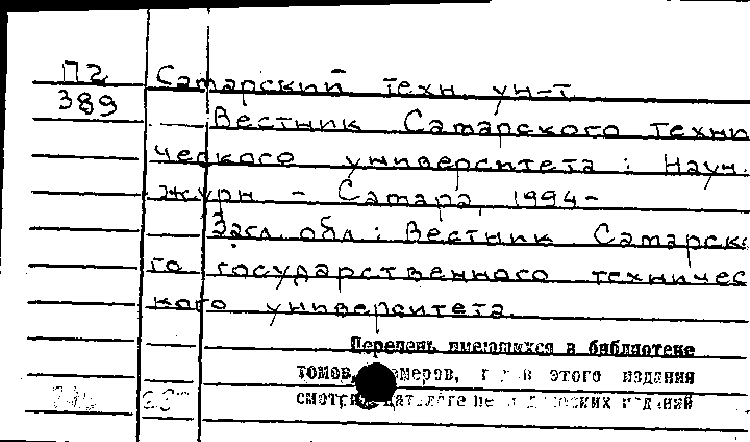 П2 Самарский техн. ун-т
389 Вестник Самарского техни
ческого университета : Науч.
журн - Самара, 1994-
Загл. обл.: Вестник Самарско
го государственного техничес
кого университета.
Перечень имеющихся в библиотеке
томов, этого издания